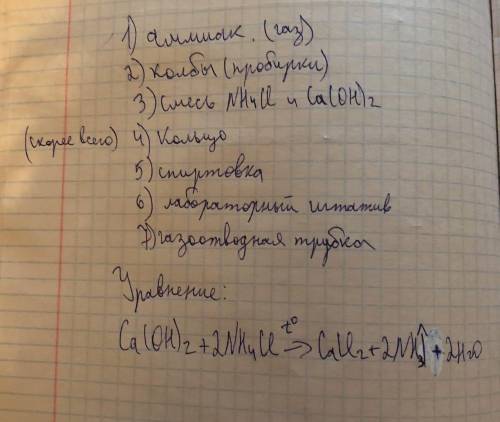 1) аммиак. (газ)
2) колбы (пробирки)
3) смесь NH4Cl и Ca(OH)2
(скорее всего) 4) Кольцо
5) спиртовка
6) лабораторный штатив
7) газоотводная трубка
Уравнение:
Ca(OH)2 + 2NH4Cl t° → CaCl2 + 2NH3↑ + 2H2O